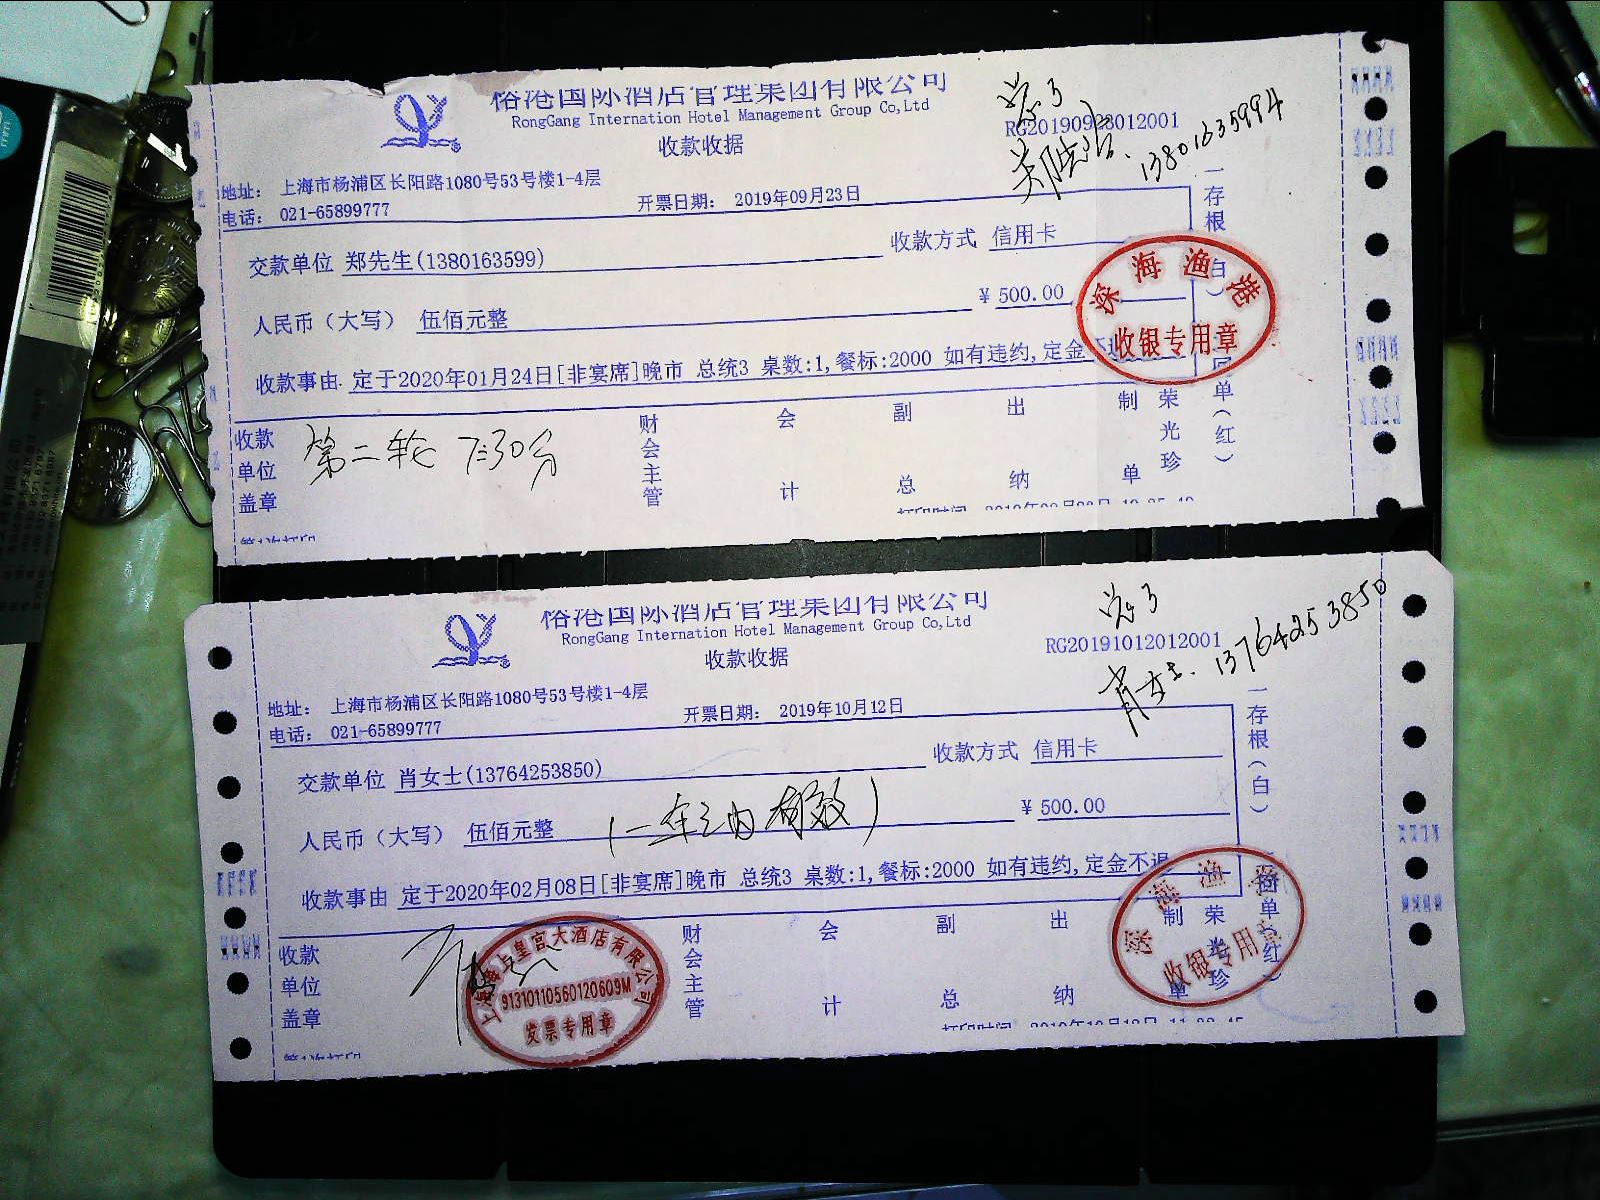 裕港国际酒店管理集团有限公司
RongGang Internation Hotel Management Group Co,Ltd
收款收据
总3
RG20190923012001
13801635994
地址： 上海市杨浦区长阳路1080号53号楼1-4层
电话： 021-65899777
开票日期： 2019年09月23日
交款单位 郑先生(1380163599)
收款方式 信用卡
人民币（大写） 伍佰元整
¥ 500.00
收款事由 定于2020年01月24日[非宴席]晚市 总统3 桌数:1,餐标:2000 如有违约,定金不退
深海渔港
收银专用章
存根（白）
回单（红）
收款单位盖章
第二轮 7:30分
财会主管
会计
副总
出纳
制单
荣光珍
第1次打印
裕港国际酒店管理集团有限公司
RongGang Internation Hotel Management Group Co,Ltd
收款收据
总3
RG20191012012001
肖女士. 13764253850
地址： 上海市杨浦区长阳路1080号53号楼1-4层
电话： 021-65899777
开票日期： 2019年10月12日
交款单位 肖女士(13764253850)
收款方式 信用卡
人民币（大写） 伍佰元整
(一年之内有效)
¥ 500.00
收款事由 定于2020年02月08日[非宴席]晚市 总统3 桌数:1,餐标:2000 如有违约,定金不退
存根（白）
回单（红）
深海渔港
收银专用章
收款单位盖章
91310110560120609M
发票专用章
财会主管
会计
副总
出纳
制单
荣光珍
第1次打印